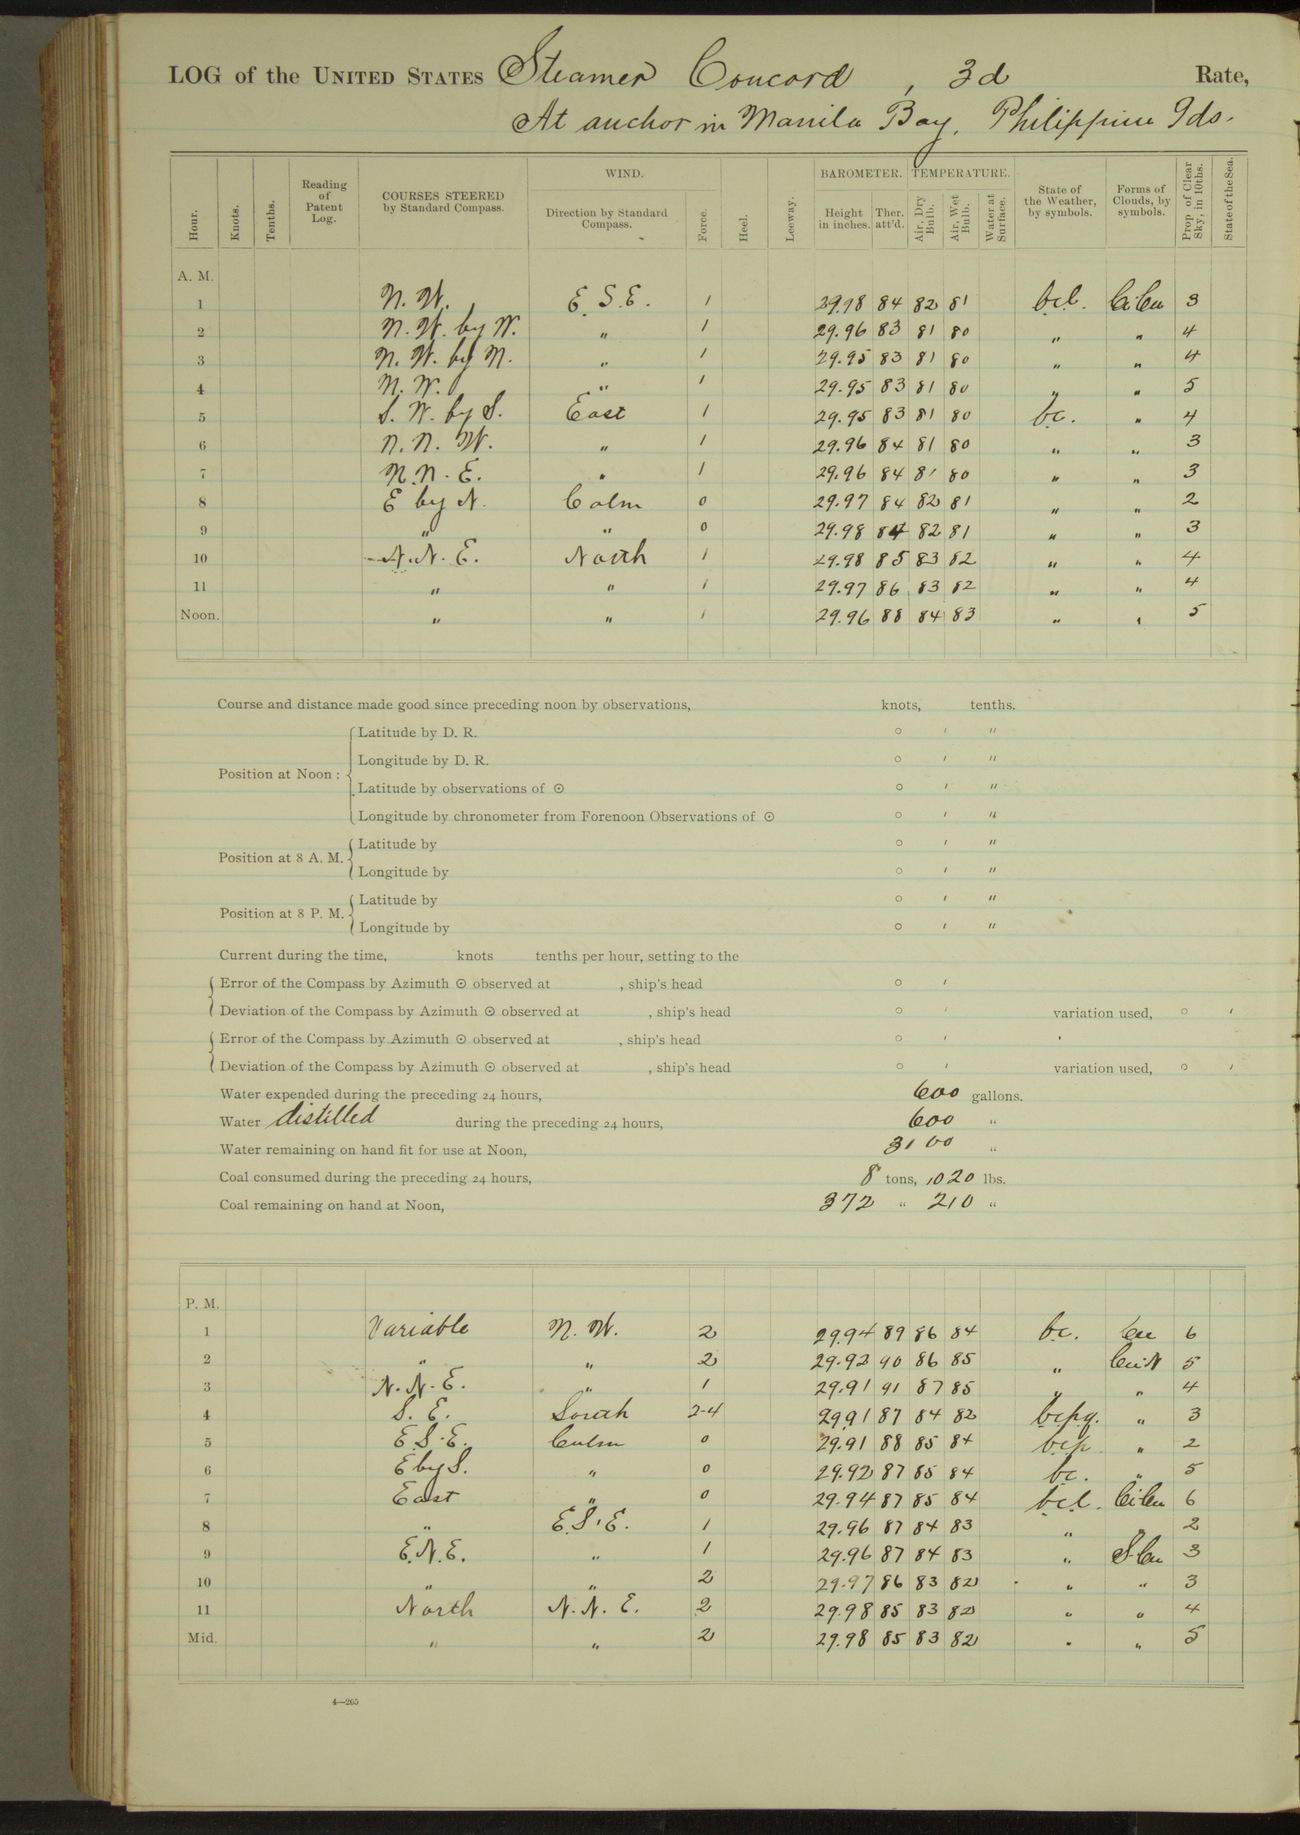 LOG of the UNITED STATES Steamer Concord, 3d Rate,
At anchor in Manila Bay, Philippine Ids.
Hour. Knots. Tenths. Reading of Patent Log. COURSES STEERED by Standard Compass. WIND. Direction by Standard Compass. Force. Heel. Leeway. BAROMETER. Height in inches. Ther. att'd. TEMPERATURE. Air, Dry Bulb. Air, Wet Bulb. Water at Surface. State of the Weather, by symbols. Forms of Clouds, by symbols. Prop. of Clear Sky, in 10ths. State of the Sea.
A. M.
1 N. W. E. S. E. 1 29.98 84 82 81 b.c.l. Ci.Cu 3
2 N. W. by W. " 1 29.96 83 81 80 " " 4
3 N. W. by N. " 1 29.95 83 81 80 " " 4
4 N. W. " 1 29.95 83 81 80 " " 5
5 S. W. by S. East 1 29.95 83 81 80 b.c. " 4
6 N. N. W. " 1 29.96 84 81 80 " " 3
7 N. N. E. " 1 29.96 84 81 80 " " 3
8 E by N. Calm 0 29.97 84 82 81 " " 2
9 " " 0 29.98 84 82 81 " " 3
10 N. N. E. North 1 29.98 85 83 82 " " 4
11 " " 1 29.97 86 83 82 " " 4
Noon. " " 1 29.96 88 84 83 " " 5
Course and distance made good since preceding noon by observations, knots, tenths.
Position at Noon :
Latitude by D. R. ° ′ ″
Longitude by D. R. ° ′ ″
Latitude by observations of ☉ ° ′ ″
Longitude by chronometer from Forenoon Observations of ☉ ° ′ ″
Position at 8 A. M.
Latitude by ° ′ ″
Longitude by ° ′ ″
Position at 8 P. M.
Latitude by ° ′ ″
Longitude by ° ′ ″
Current during the time, knots tenths per hour, setting to the
Error of the Compass by Azimuth ☉ observed at , ship's head ° ′
Deviation of the Compass by Azimuth ☉ observed at , ship's head ° ′ variation used, ° ′
Error of the Compass by Azimuth ☉ observed at , ship's head ° ′
Deviation of the Compass by Azimuth ☉ observed at , ship's head ° ′ variation used, ° ′
Water expended during the preceding 24 hours, 600 gallons.
Water distilled during the preceding 24 hours, 600 "
Water remaining on hand fit for use at Noon, 3100 "
Coal consumed during the preceding 24 hours, 8 tons, 1020 lbs.
Coal remaining on hand at Noon, 372 " 210 "
P. M.
1 Variable N. W. 2 29.94 89 86 84 b.c. Cu 6
2 " " 2 29.92 90 86 85 " Cu.N 5
3 N. N. E. " 1 29.91 91 87 85 " " 4
4 S. E. South 2-4 29.91 87 84 82 b.c.p.q. " 3
5 E. S. E. Calm 0 29.91 88 85 84 b.c.p. " 2
6 E by S. " 0 29.92 87 85 84 b.c. " 5
7 East " 0 29.94 87 85 84 b.c.l. Ci.Cu 6
8 " E. S. E. 1 29.96 87 84 83 " " 2
9 E. N. E. " 1 29.96 87 84 83 " S.Cu 3
10 " " 2 29.97 86 83 82 " " 3
11 North N. N. E. 2 29.98 85 83 82 " " 4
Mid. " " 2 29.98 85 83 82 " " 5
4—265